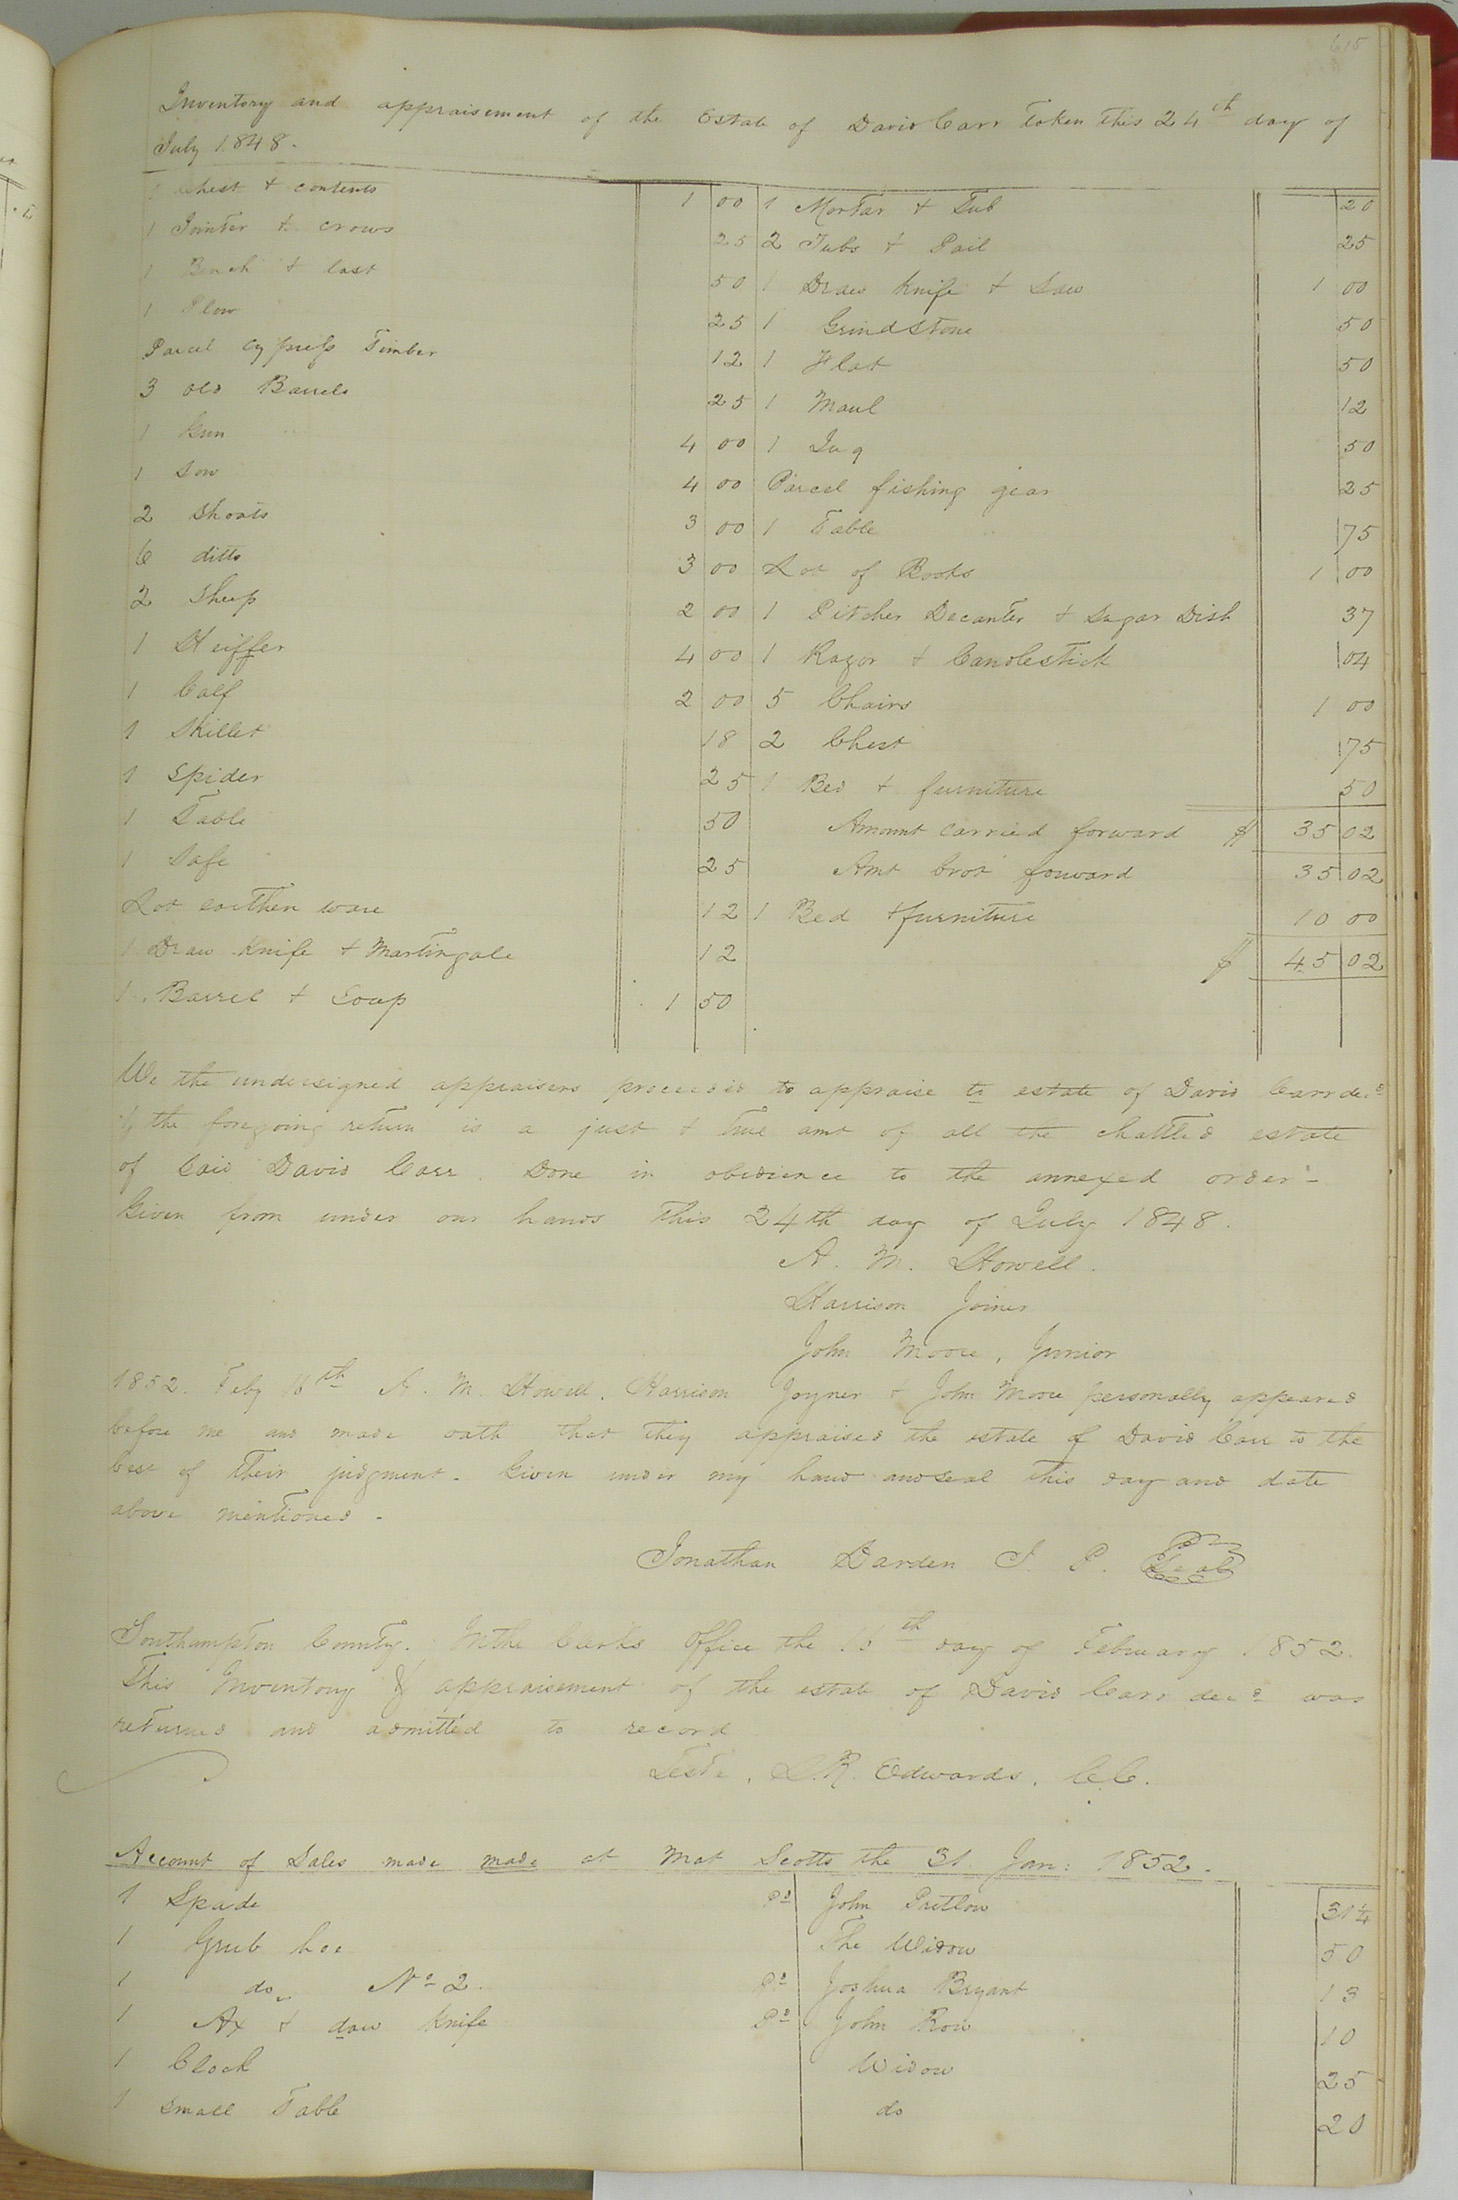 615
Inventory and appraisement of the Estate of David Carr taken this 24th day of
July 1848.
1 Chest & contents 1 00
1 Jointer & crows 25
1 Bench & last 50
1 Plow 25
Parcel cypress Timber 12
3 old Barrels 25
1 Gun 4 00
1 Sow 4 00
2 Shoats 3 00
6 ditto 3 00
2 Sheep 2 00
1 Heiffer 4 00
1 Calf 2 00
1 Skillet 18
1 Spider 25
1 Table 50
1 Safe 25
Lot earthen ware 12
1 Draw Knife & Martingale 12
1 Barrel & Soap 1 50
1 Mortar & Tub 20
2 Tubs & Pail 25
1 Draw Knife & Saw 1 00
1 Grindstone 50
1 Flat 50
1 Maul 12
1 Jug 50
Parcel fishing gear 25
1 Table 75
Lot of Books 1 00
1 Pitcher Decanter & Sugar Dish 37
1 Razor & Candlestick 04
5 Chairs 1 00
2 Chest 75
1 Bed & furniture 50
Amount carried forward $ 35 02
Amt brot forward 35 02
1 Bed & furniture 10 00
$ 45 02
We the undersigned appraisers proceeded to appraise to estate of David Carr decd
& the foregoing return is a just & true amt of all the chattled estate
of Said David Carr. Done in obedience to the annexed order -
Given from under our hands this 24th day of July 1848.
A. M. Howell.
Harrison Joiner
John Moore, Junior
1852. Feby 16th A. M. Howell, Harrison Joyner & John Moore personally appeared
before me and made oath that they appraised the estate of David Carr to the
best of their judgment. Given under my hand and seal this day and date
above mentioned -
Jonathan Darden J. P. Seal
Southampton County. In the Clerks Office the 16th day of February 1852.
This Inventory & appraisement of the estate of David Carr decd was
returned and admitted to record
Teste, L. R. Edwards, C.C.
Account of Sales made made at Mat Scotts the 31 Jan: 1852.
1 Spade Pd John Pretlow 31¼
1 Grub hoe The Widow 50
1 do, No 2. Pd Joshua Bryant 13
1 Ax & daw Knife Pd John Row 10
1 Clock Widow 25
1 Small Table do 20